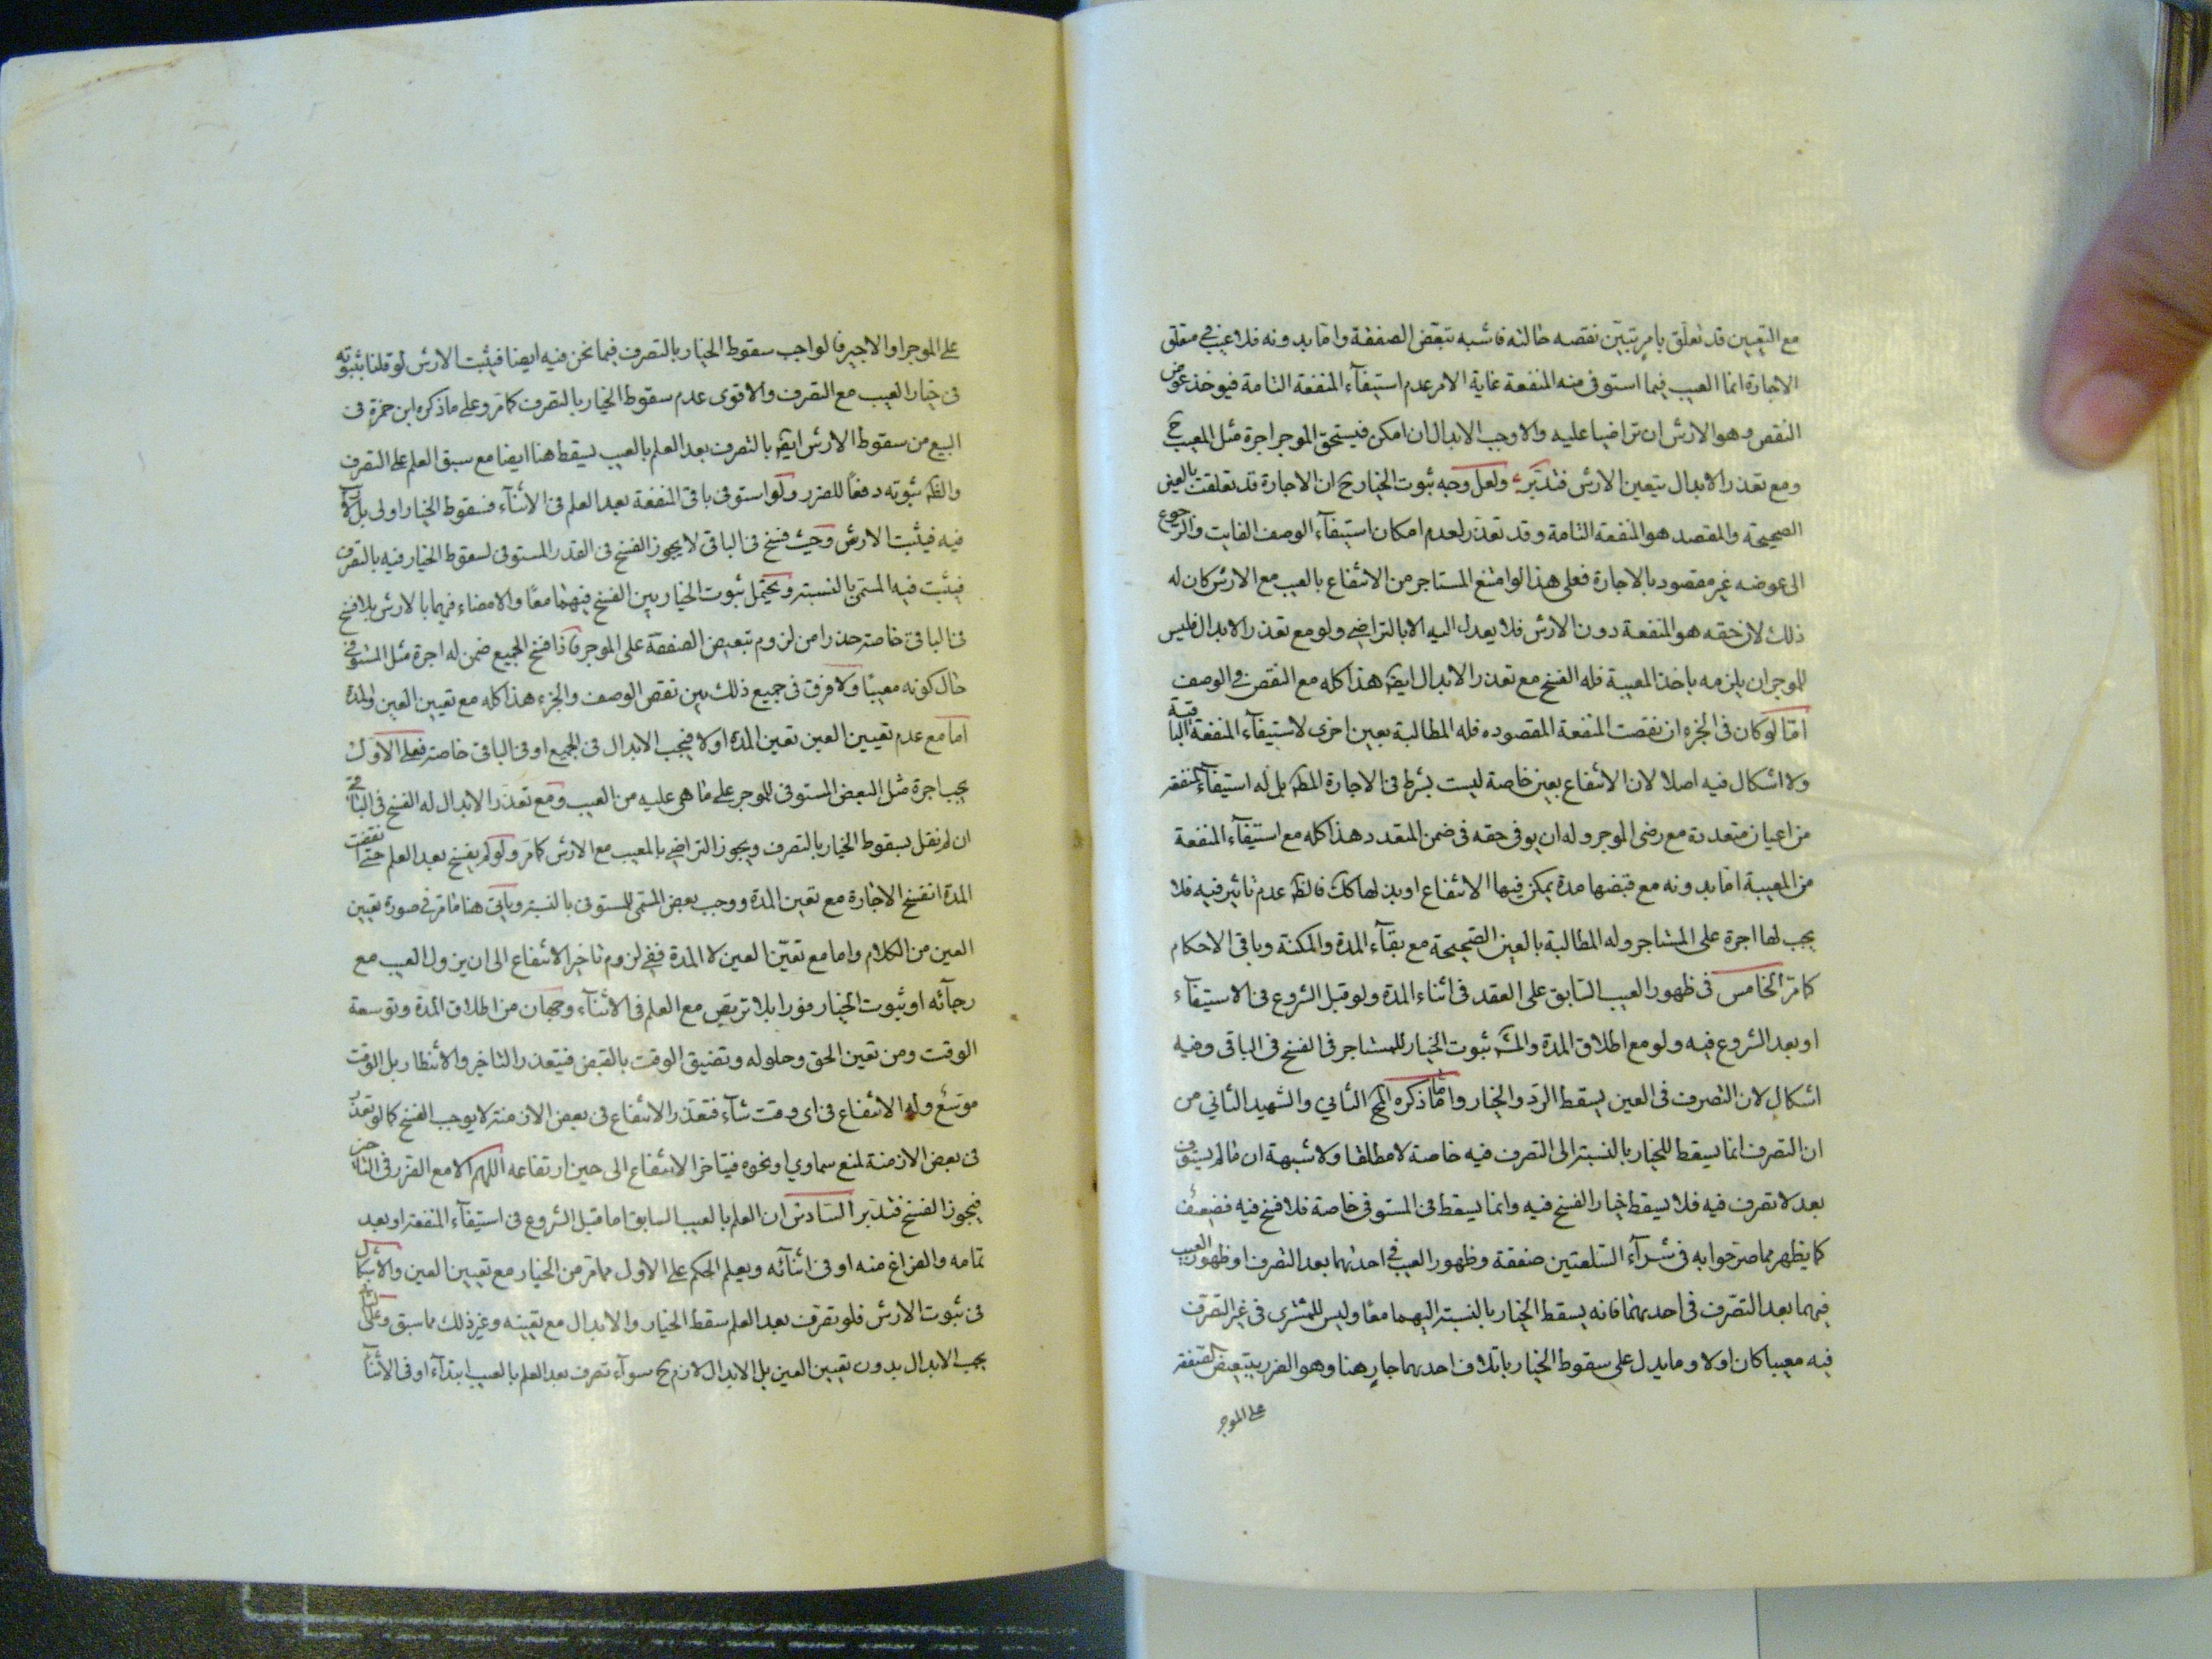 مع التعيين قد تعلق بامر تبين نقصه حالته فاشبه تبعض الصفقة واما بدونه فلا عيب في متعلق
الاجارة انما العيب فيما استوفى منه المنفعة غاية الامر عدم استيفاء المنفعة التامة فيوخذ عوض
النقص وهو الارش ان تراضيا عليه والا وجب الابدال ان امكن فيستحق الموجر اجرة مثل المعيب ح
ومع تعذر الابدال يتعين الارش فتدبر ولعل وجه ثبوت الخيار ح ان الاجارة قد تعلقت بالعين
الصحيحة والمقصد هو المنفعة التامة وقد تعذر لعدم امكان استيفاء الوصف الفايت والرجوع
الى عوضه غير مقصود بالاجارة فعلى هذا لو امتنع المستاجر من الانتفاع بالعيب مع الارش كان له
ذلك لان حقه هو المنفعة دون الارش فلا يعدل اليه الا بالتراضي ولو مع تعذر الابدال فليس
للموجر ان يلزمه باخذ المعيبة فله الفسخ مع تعذر الابدال ايضا هذا كله مع النقص في الوصف
اما لو كان في الجزء ان نقصت المنفعة المقصوده فله المطالبة بعين اخرى لاستيفاء المنفعة الباقية
ولا اشكال فيه اصلا لان الانتفاع بعين خاصة ليست بشرط في الاجارة المط بل له استيفاء المنفعة
من اعيان متعددة مع رضى الموجر وله ان يوفى حقه في ضمن المتعدد هذا كله مع استيفاء المنفعة
من المعيبة اما بدونه مع قبضها مدة يمكن فيها الانتفاع او بذلها كك فالظ عدم تاثير فيه فلا
يجب لها اجرة على المستاجر وله المطالبة بالعين الصحيحة مع بقاء المدة والمكنة وباقي الاحكام
كما مر الخامس في ظهور العيب السابق على العقد في اثناء المدة ولو قبل الشروع في الاستيفاء
او بعد الشروع فيه ولو مع اطلاق المدة والمش ثبوت الخيار للمستاجر في الفسخ في الباقي وفيه
اشكال لان التصرف في العين يسقط الرد والخيار واما ما ذكره المح الثاني والشهيد الثاني من
ان التصرف انما يسقط للخيار بالنسبة الى التصرف فيه خاصة لا مطلقا ولا شبهة ان ما لم يستوف
بعد لا تصرف فيه فلا يسقط خيار الفسخ فيه وانما يسقط في المستوفى خاصة فلا فسخ فيه فضعيف
كما يظهر مما صرحوا به في شراء السلعتين صفقة وظهور العيب في احدتهما بعد التصرف او ظهور العيب
فيهما بعد التصرف في احدتهما فانه يسقط الخيار بالنسبة اليهما معا وليس للمشترى في غير التصرف
فيه معيبا كان او لا وما يدل على سقوط الخيار باتلاف احدتهما جار هنا وهو الضرر بتبعيض الصفقة
على الموجر
على الموجر او الاجير فالواجب سقوط الخيار بالتصرف فيما نحن فيه ايضا فيثبت الارش لو قلنا بثبوته
في خيار العيب مع التصرف والاقوى عدم سقوط الخيار بالتصرف كما مر وعلى ما ذكره ابن حمزة في
البيع من سقوط الارش ايضا بالتصرف بعد العلم بالعيب يسقط هنا ايضا مع سبق العلم على التصرف
والظ ثبوته دفعا للضرر ولو استوفى باقي المنفعة بعد العلم في الاثناء فسقوط الخيار اولى بل
فيه فيثبت الارش وحيث فسخ في الباقي لا يجوز الفسخ في القدر المستوفى لسقوط الخيار فيه بالتصرف
فيثبت فيه المسمى بالنسبة ويحتمل ثبوت الخيار بين الفسخ فيهما معا والامضاء فيهما بالارش بلا فسخ
في الباقي خاصة حذرا من لزوم تبعيض الصفقة على الموجر فاذا فسخ الجميع ضمن له اجرة مثل المستوفى
حال كونه معيبا ولا فرق في جميع ذلك بين نقص الوصف والجزء هذا كله مع تعيين العين والمدة
اما مع عدم تعيين العين تعين المدة او لا فيجب الابدال في الجميع او في الباقي خاصة فعلى الاول
يجب اجرة مثل البعض المستوفى للموجر على ما هي عليه من العيب ومع تعذر الابدال له الفسخ في الباقي
ان لم نقل بسقوط الخيار بالتصرف ويجوز التراضي بالمعيب مع الارش كما مر ولو لم يفسخ بعد العلم حتى انقضت
المدة انفسخ الاجارة مع تعين المدة ووجب بعض المسمى للمستوفى بالنسبة وياتي هنا ما مر في صورة تعيين
العين من الكلام واما مع تعين العين لا المدة ففي لزوم تاخير الانتفاع الى ان يزول العيب مع
رجائه او ثبوت الخيار فورا بلا تربص مع العلم في الاثناء وجهان من اطلاق المدة وتوسعة
الوقت ومن تعين الحق وحلوله وتضيق الوقت بالقبض فيتعذر التاخير والانتظار بل الوقت
موسع وله الانتفاع في اى وقت شاء فتعذر الانتفاع في بعض الازمنة لا يوجب الفسخ كما لو تعذر
في بعض الازمنة لمنع سماوي او نحوه فيتاخر الانتفاع الى حين ارتفاعه اللهم الا مع الضرر في التاخير
فيجوز الفسخ فتدبر السادس ان العلم بالعيب السابق اما قبل الشروع في استيفاء المنفعة او بعد
تمامه والفراغ منه او في اثنائه ويعلم الحكم على الاول مما مر من الخيار مع تعيين العين والاشكال
في ثبوت الارش فلو تصرف بعد العلم سقط الخيار والابدال مع تعينه وغير ذلك مما سبق وعلى
يجب الابدال بدون تعيين العين بل الابدال لازم ح سواء تصرف بعد العلم بالعيب ابتداء او في الاثناء